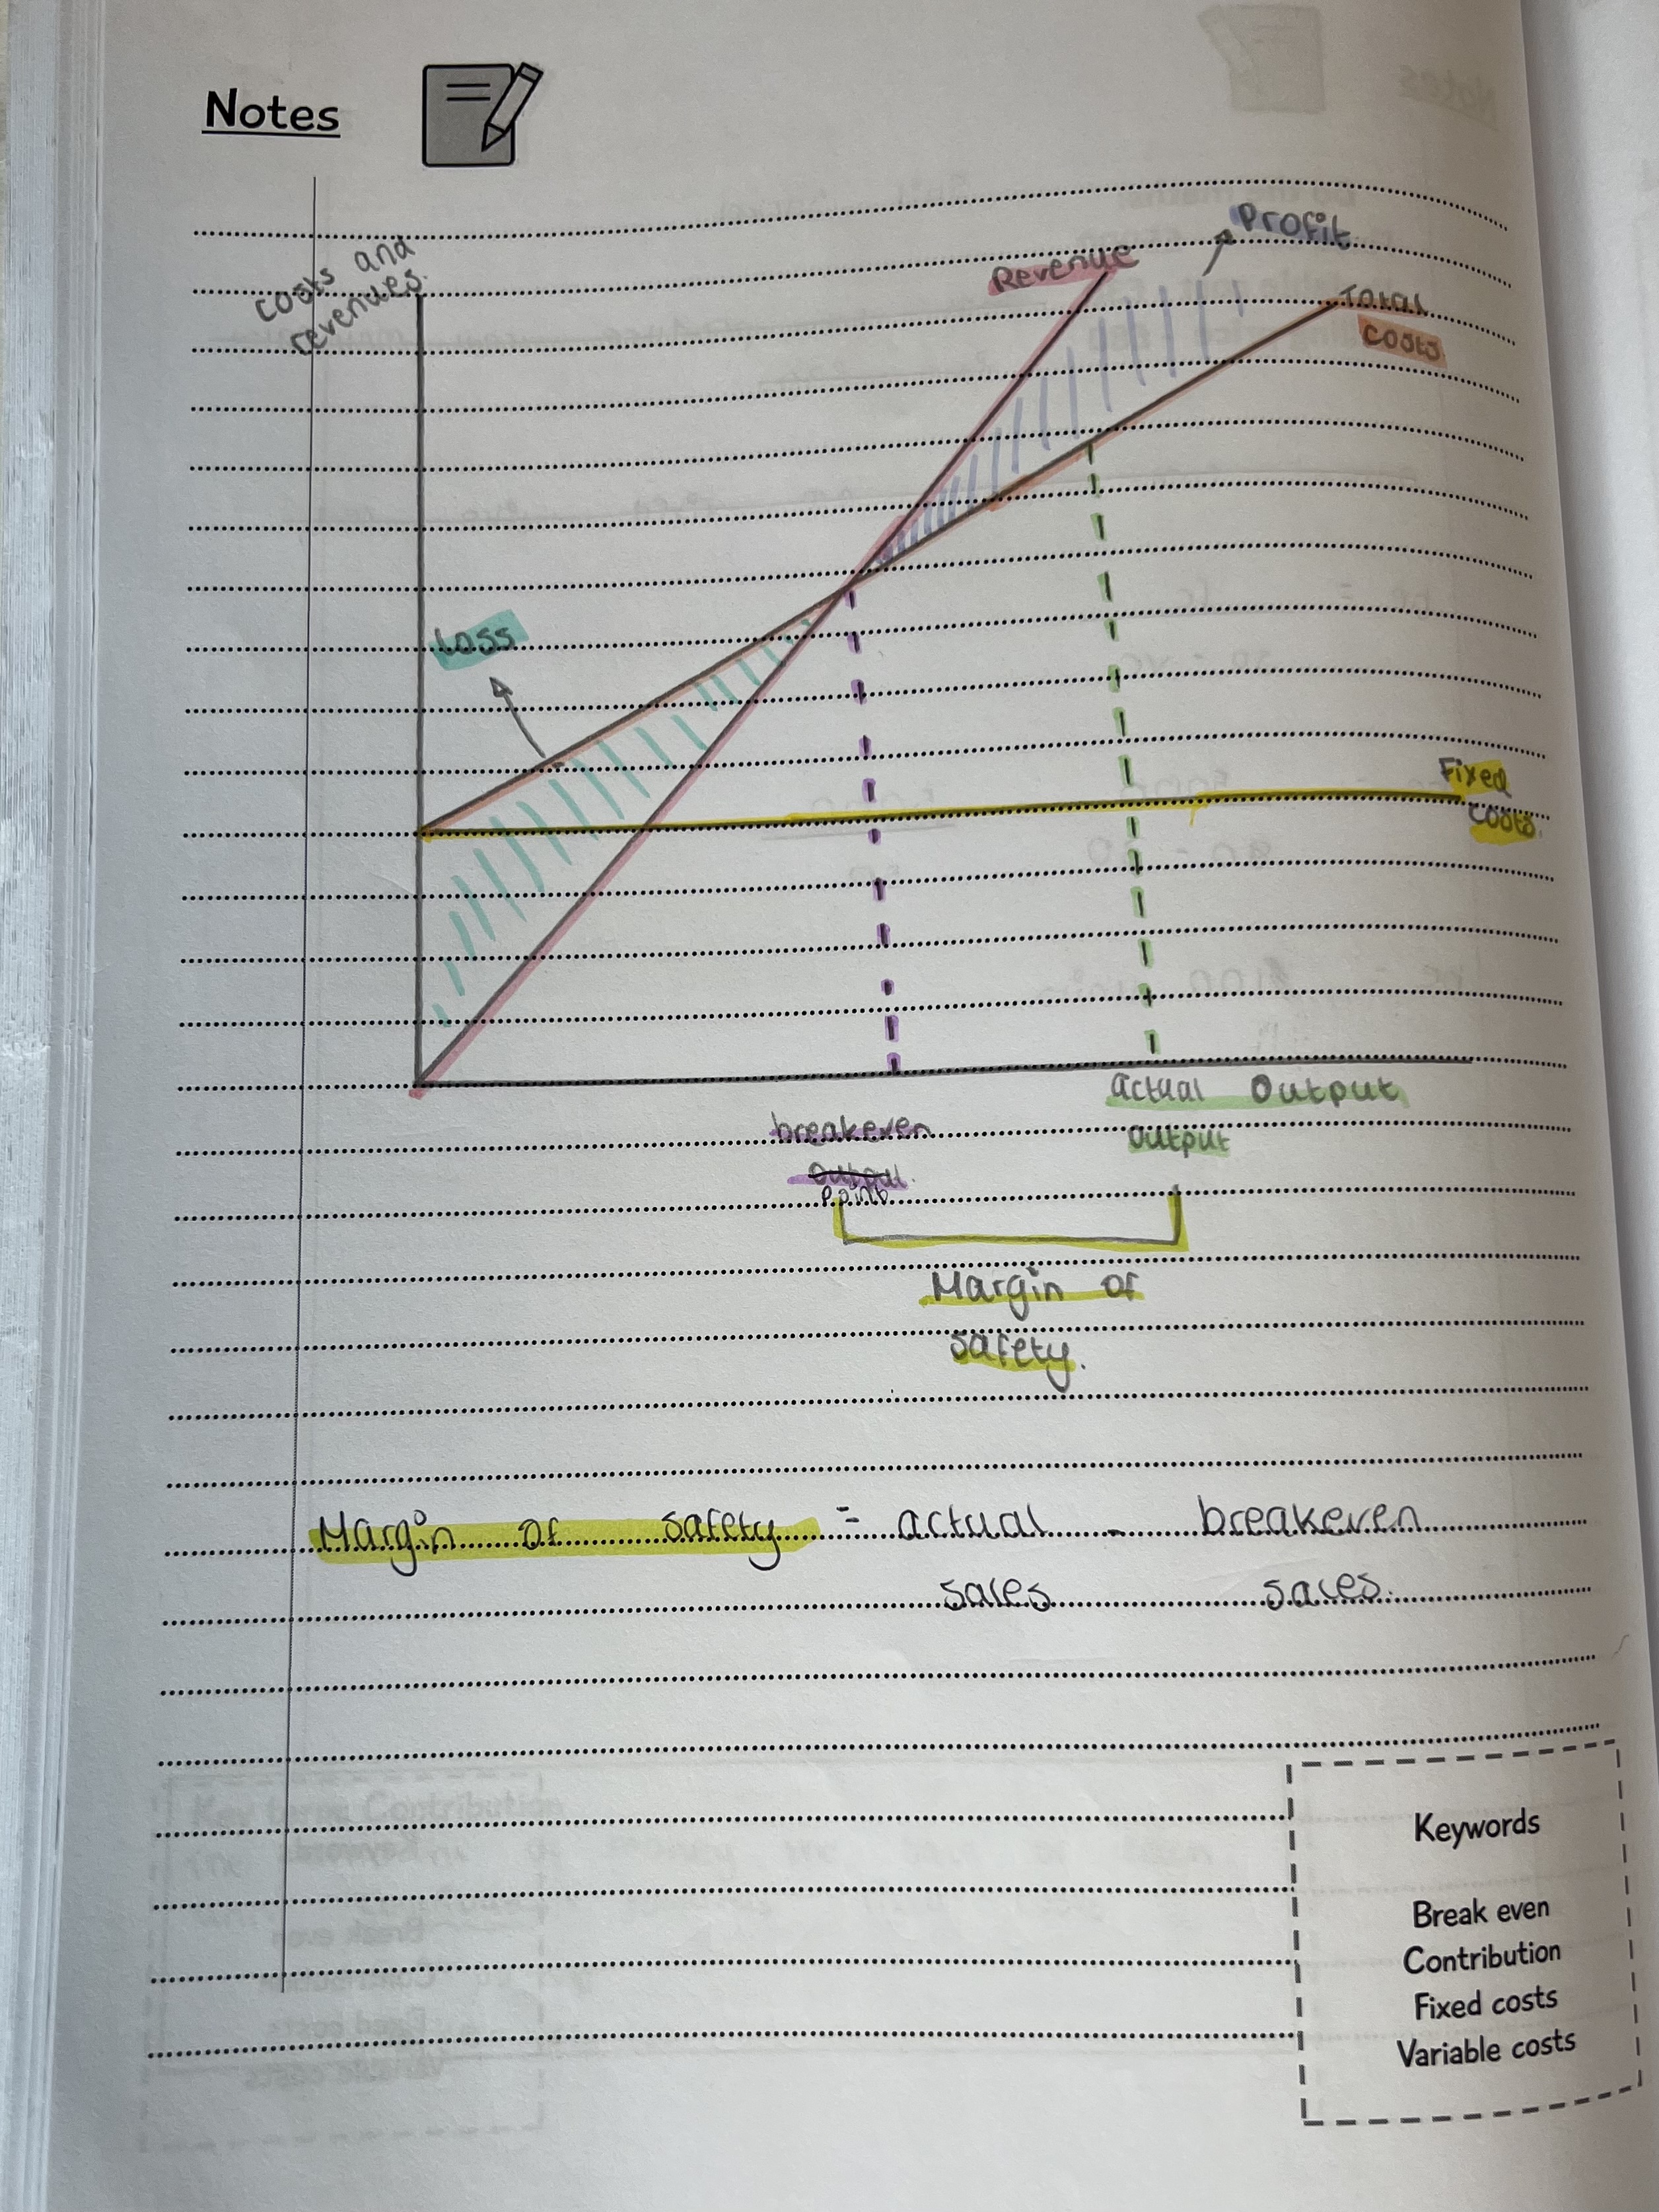 Notes
costs and
revenues.
Revenue
Profit
Total
costs.
Loss
Fixed
costs.
actual Output
output
breakeven
point
Margin of
safety.
Margin of safety = actual - breakeven
sales sales.
Keywords
Break even
Contribution
Fixed costs
Variable costs